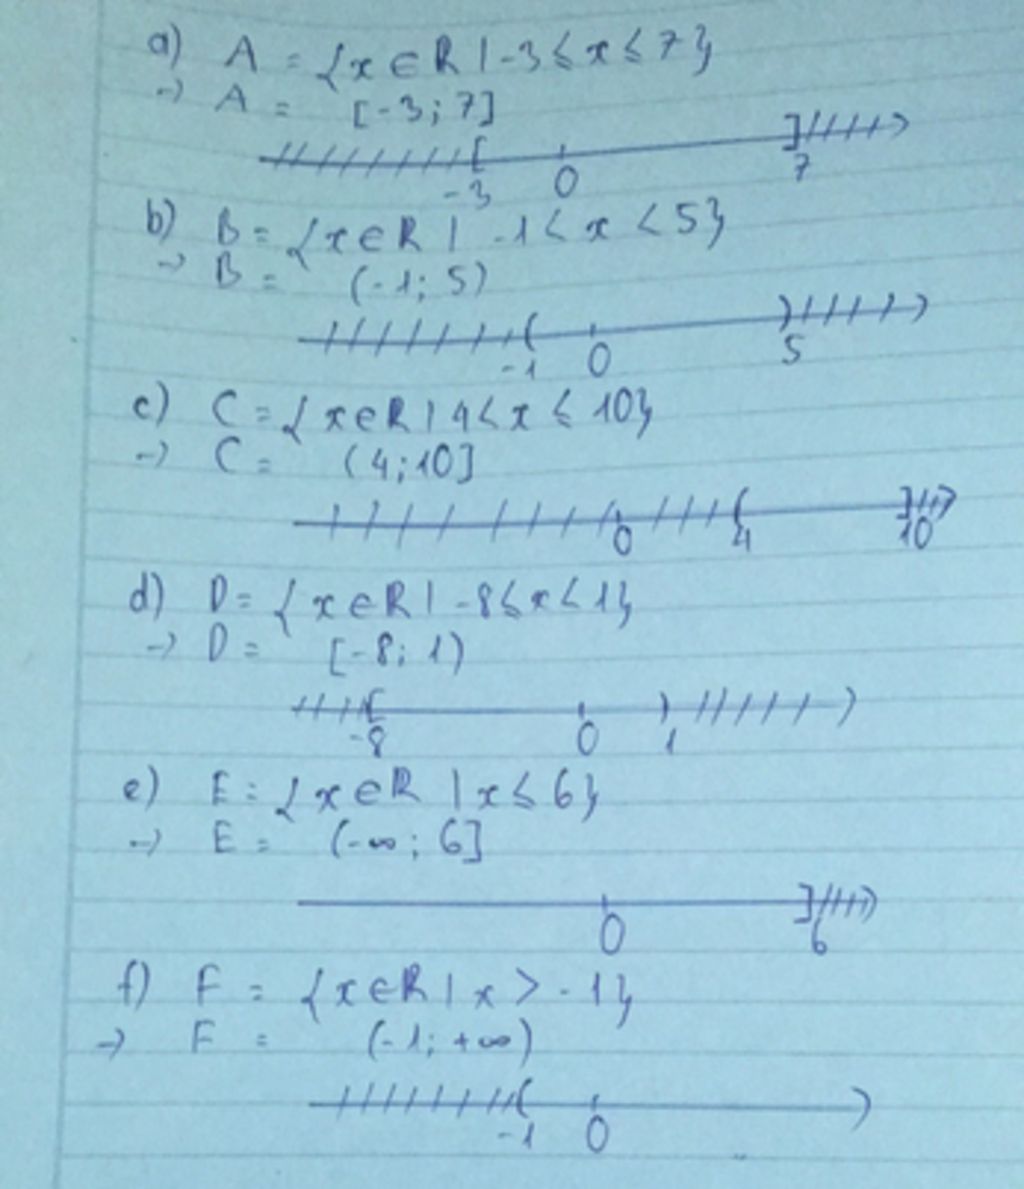 a) A = {x ∈ R | -3 ≤ x ≤ 7}
-> A = [-3; 7]
-3 0 7
b) B = {x ∈ R | -1 < x < 5}
-> B = (-1; 5)
-1 0 5
c) C = {x ∈ R | 4 < x ≤ 10}
-> C = (4; 10]
0 4 10
d) D = {x ∈ R | -8 ≤ x < 1}
-> D = [-8; 1)
-8 0 1
e) E = {x ∈ R | x ≤ 6}
-> E = (-∞; 6]
0 6
f) F = {x ∈ R | x > -1}
-> F = (-1; +∞)
-1 0